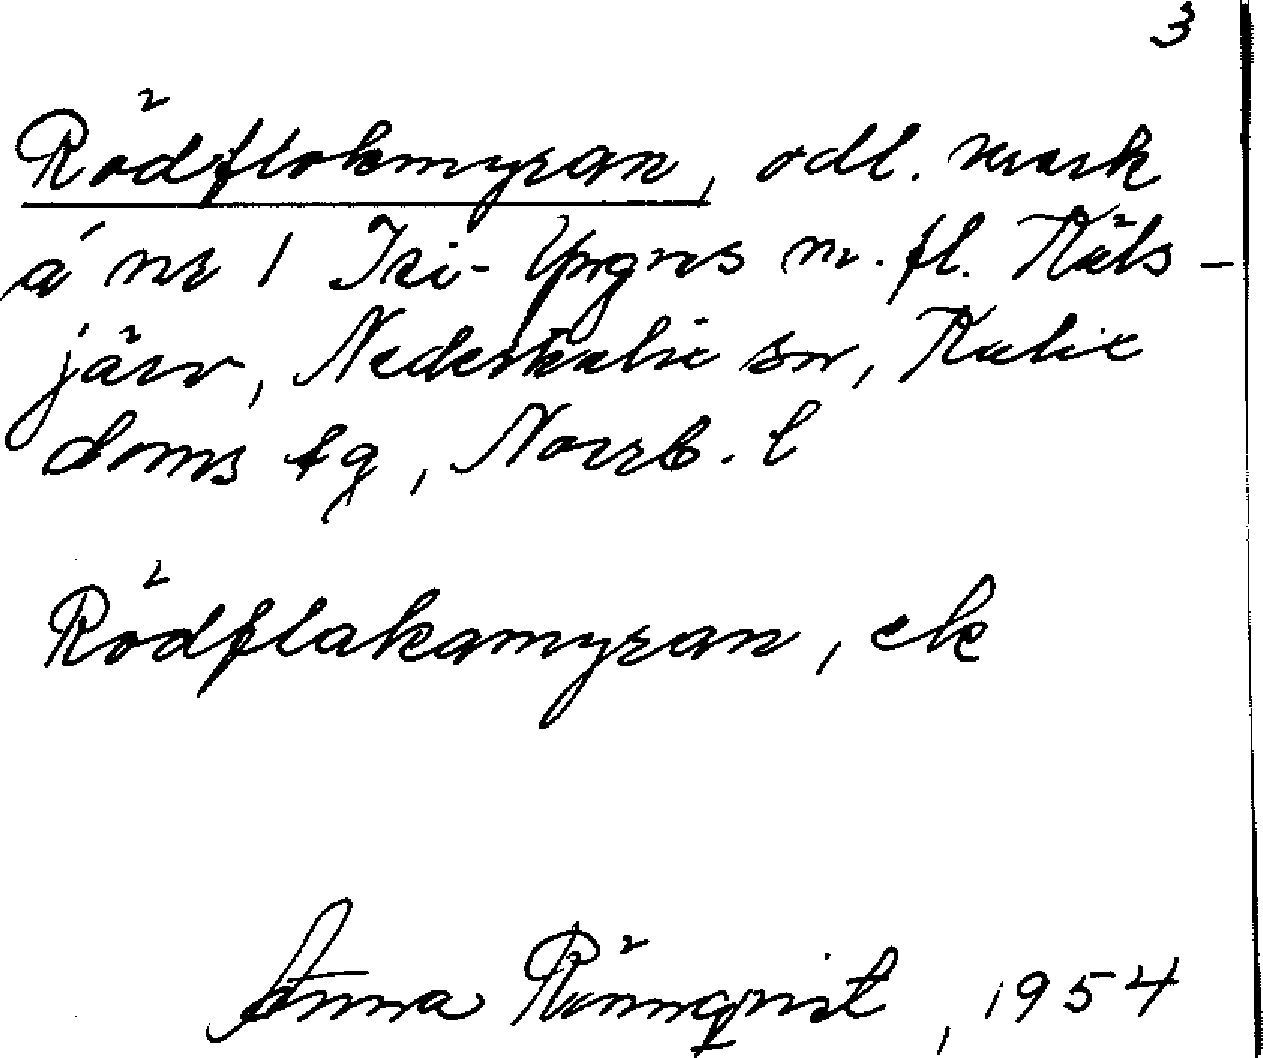 3
Rödflokmyran, odl. mark
å nr 1 Isi-Yngves m. fl. Räks-
järv, Nederkalix sn, Kalix
doms tg, Norrb. l
Rödflakamyran, ek
Anna Rönnqvist, 1954